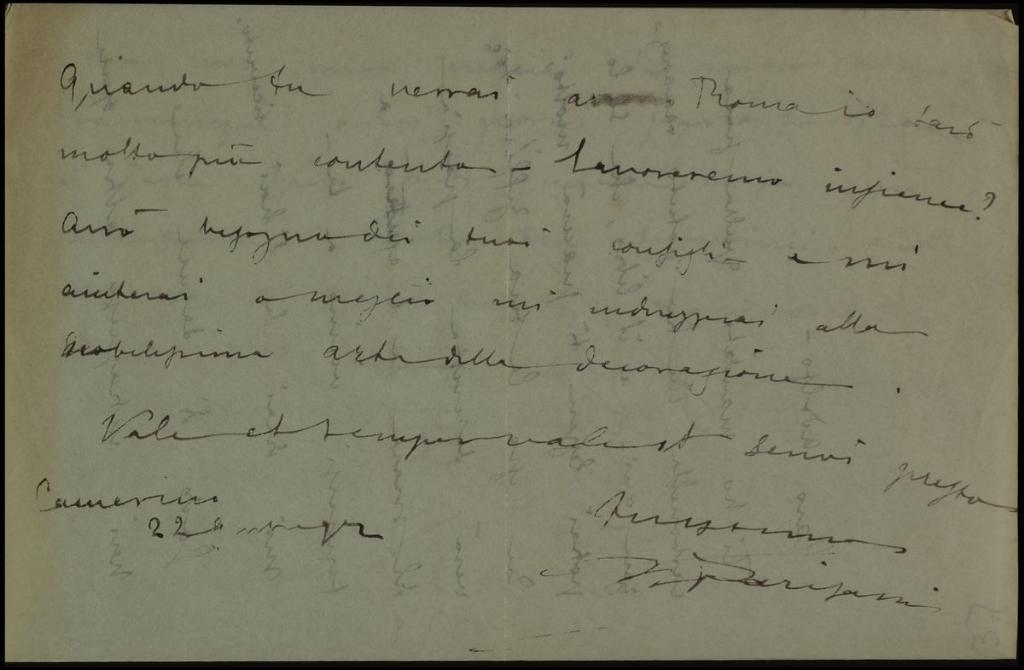 Quando tu verrai a Roma io sarò
molto più contento – lavoreremo insieme?
Avrò bisogno dei tuoi consigli e mi
aiuterai o meglio mi indirizzerai alla
nobilissima arte della decorazione.
Vale et semper vale et scrivi presto
Camerino
22
tuissimo
Parisani